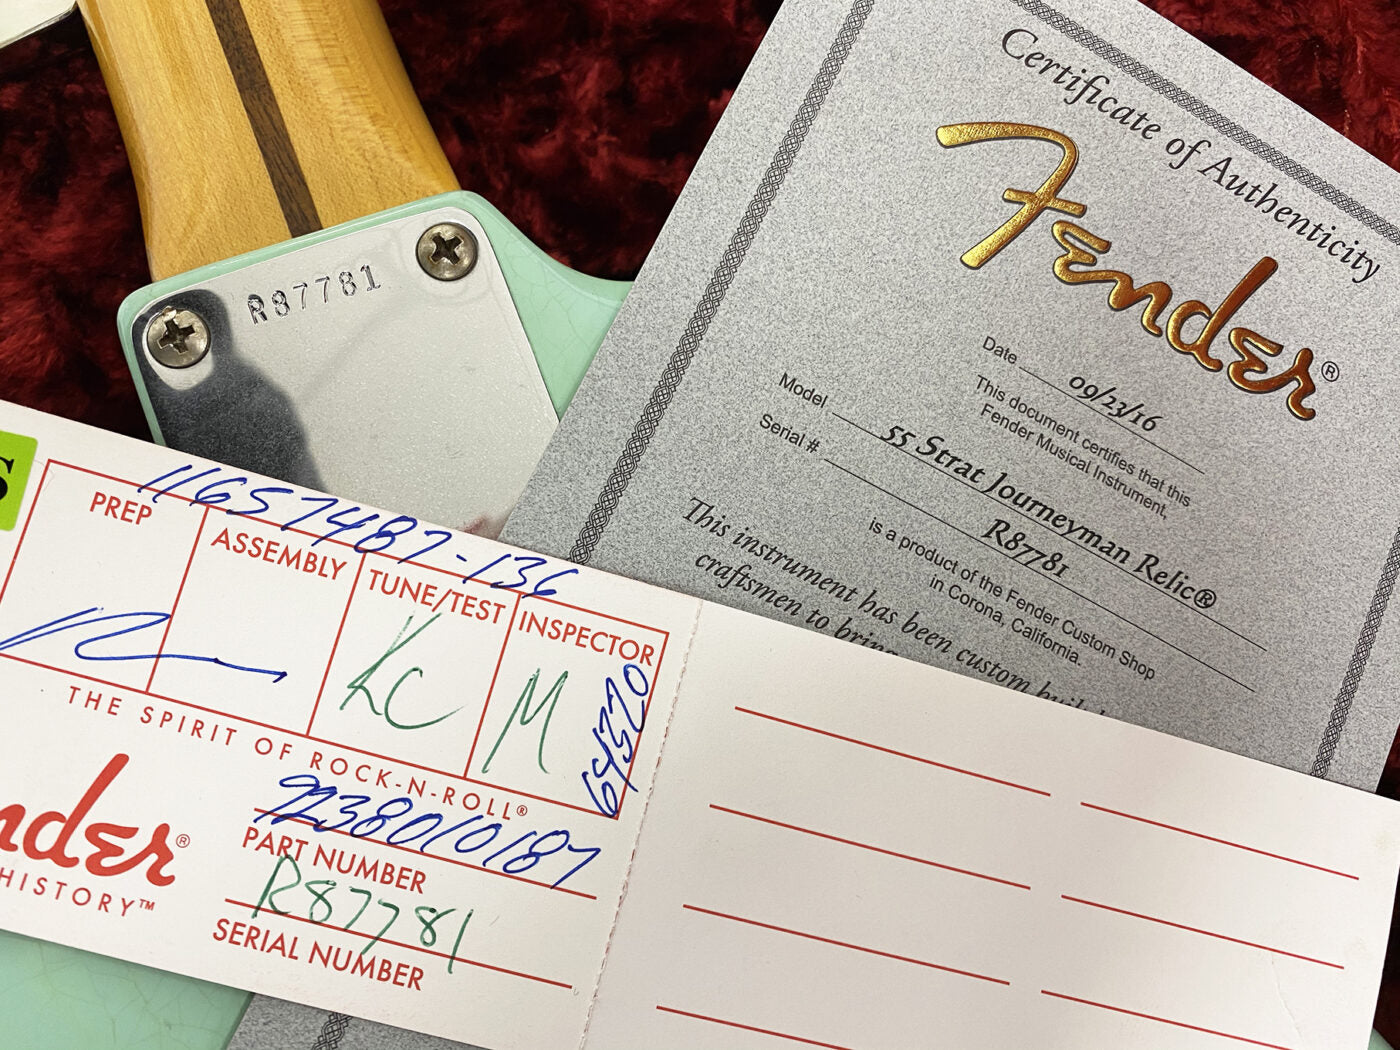 R87781
Certificate of Authenticity
Fender®
Date 09/23/16
This document certifies that this
Fender Musical Instrument,
Model 55 Strat Journeyman Relic®
Serial # R87781
is a product of the Fender Custom Shop
in Corona, California.
This instrument has been custom built
craftsmen to bring
S
11657487-136
PREP
ASSEMBLY
TUNE/TEST
INSPECTOR
KC
M
64320
THE SPIRIT OF ROCK-N-ROLL®
nder®
HISTORY™
9238010187
PART NUMBER
R87781
SERIAL NUMBER